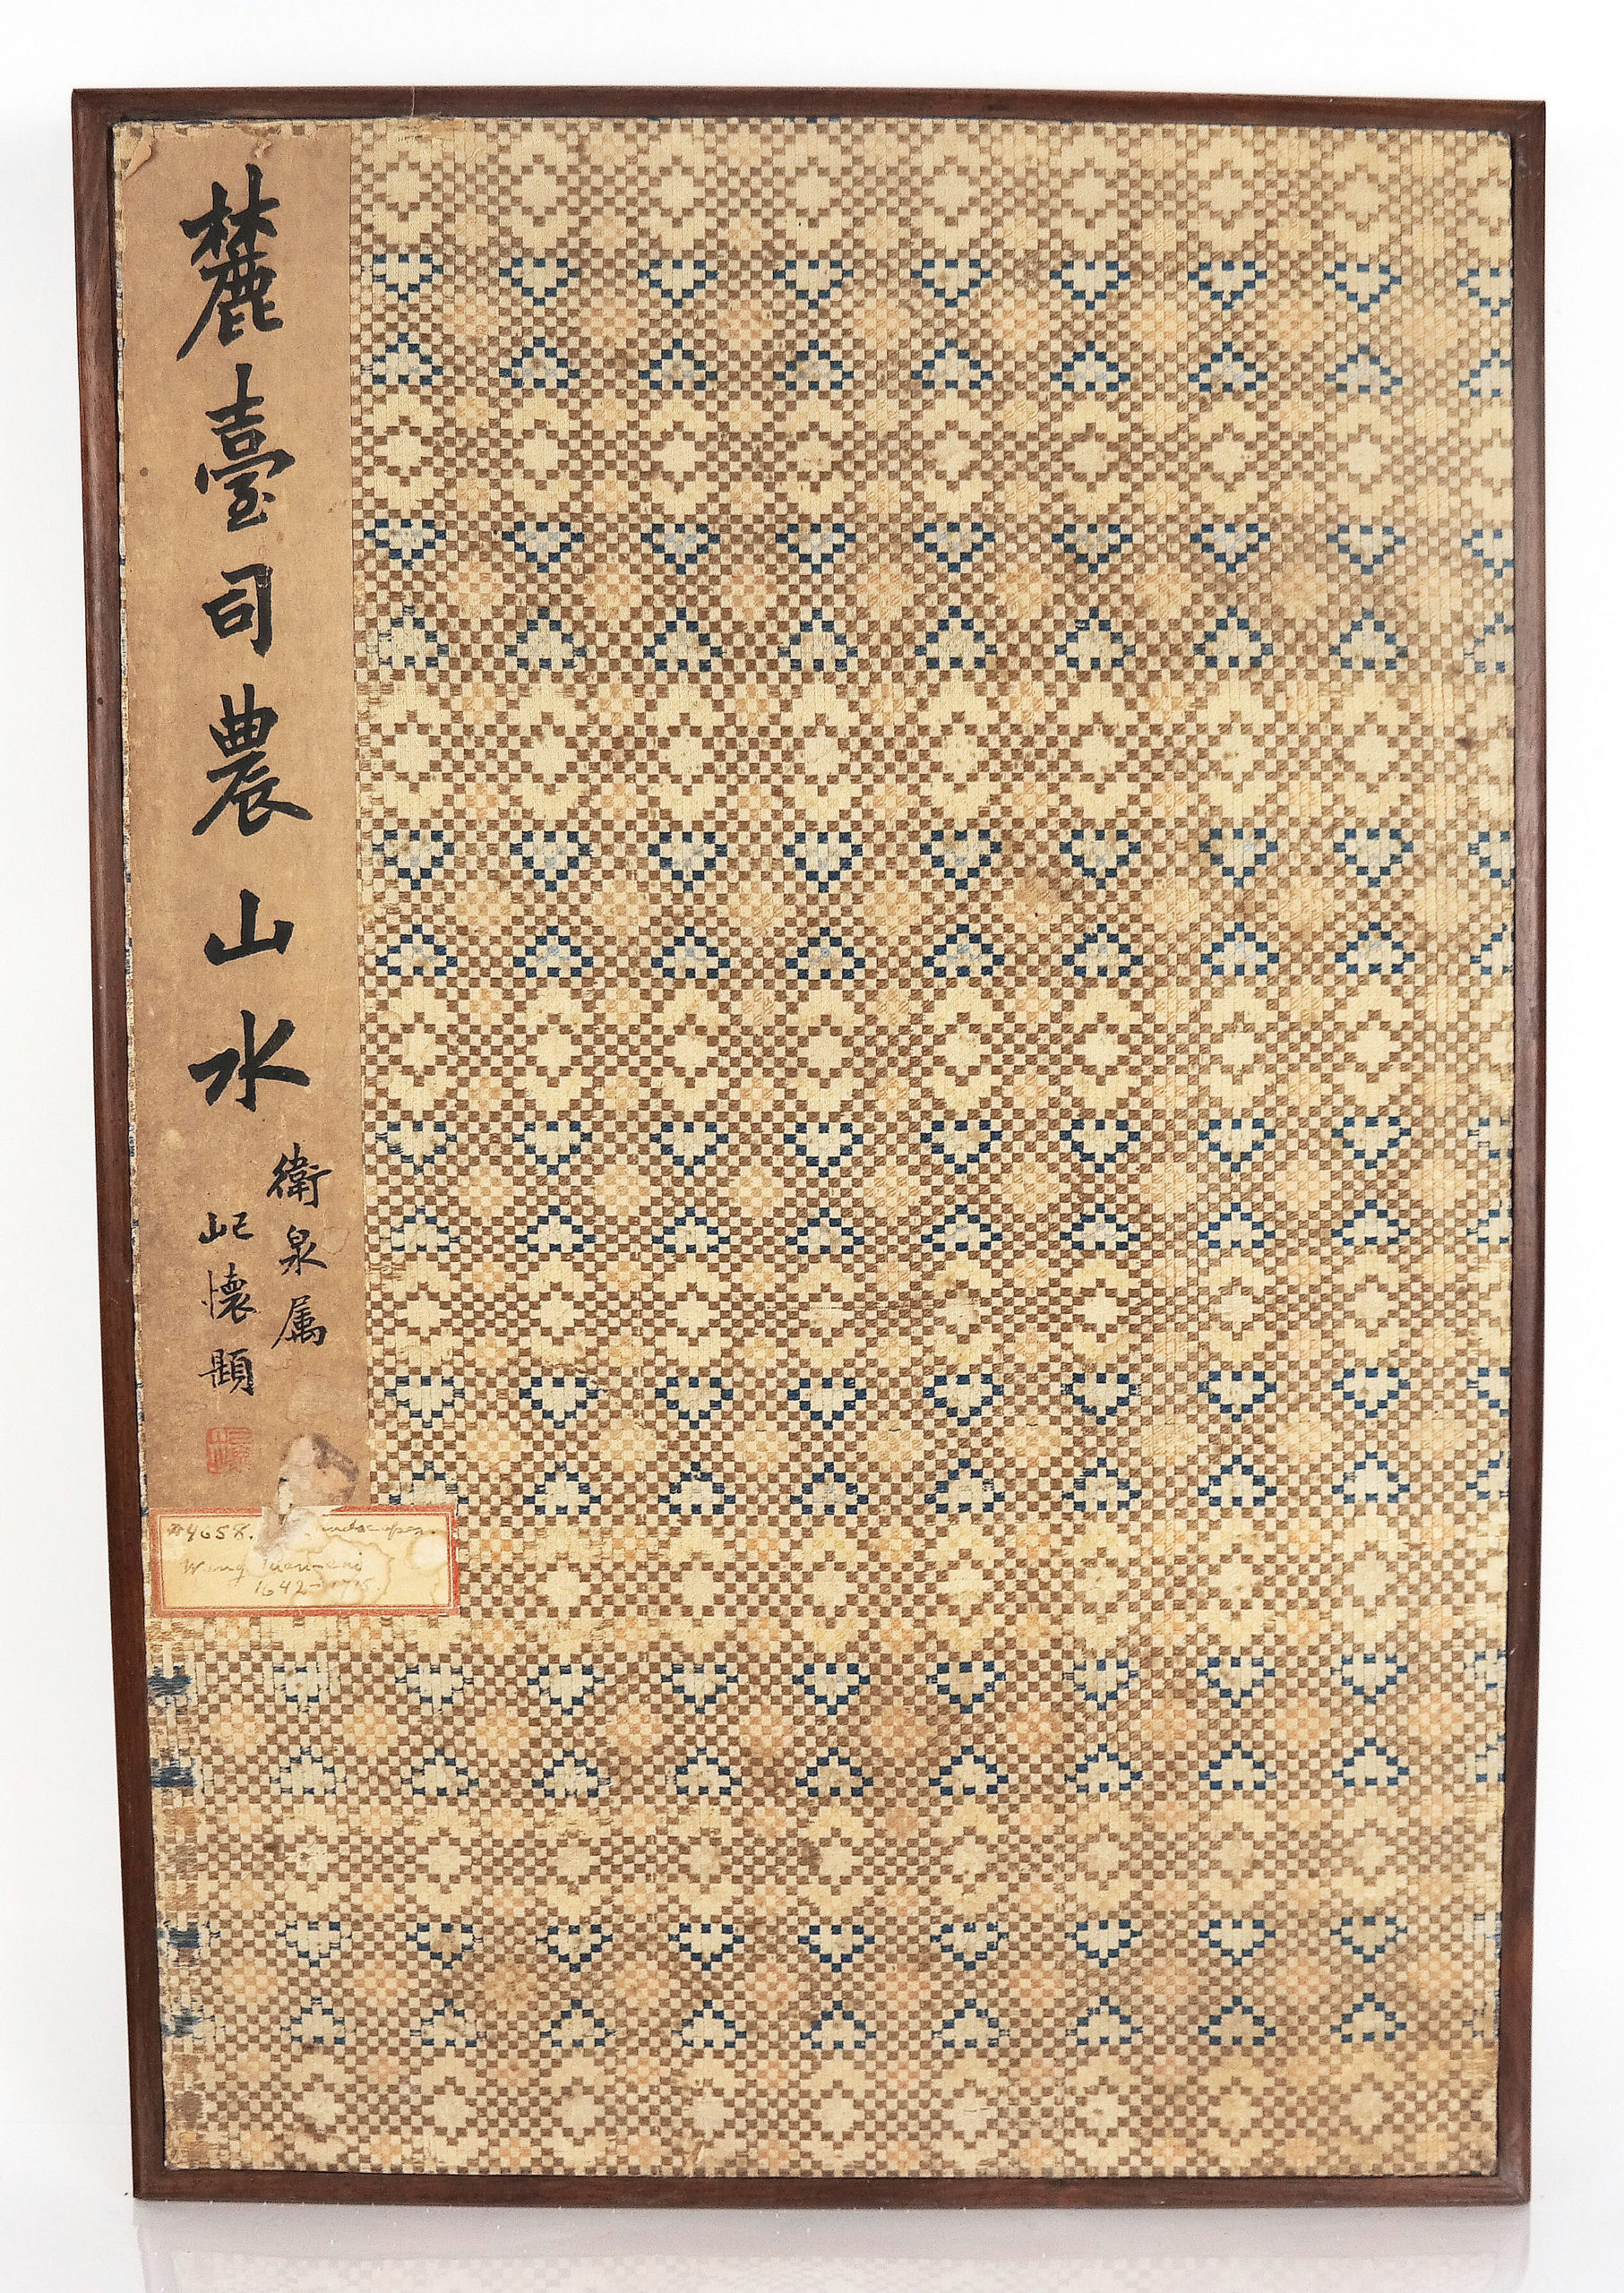 麓臺司農山水
衛泉属
屺懷題
#4658. landscapes.
Wang Yuan-chi
1642-1715.